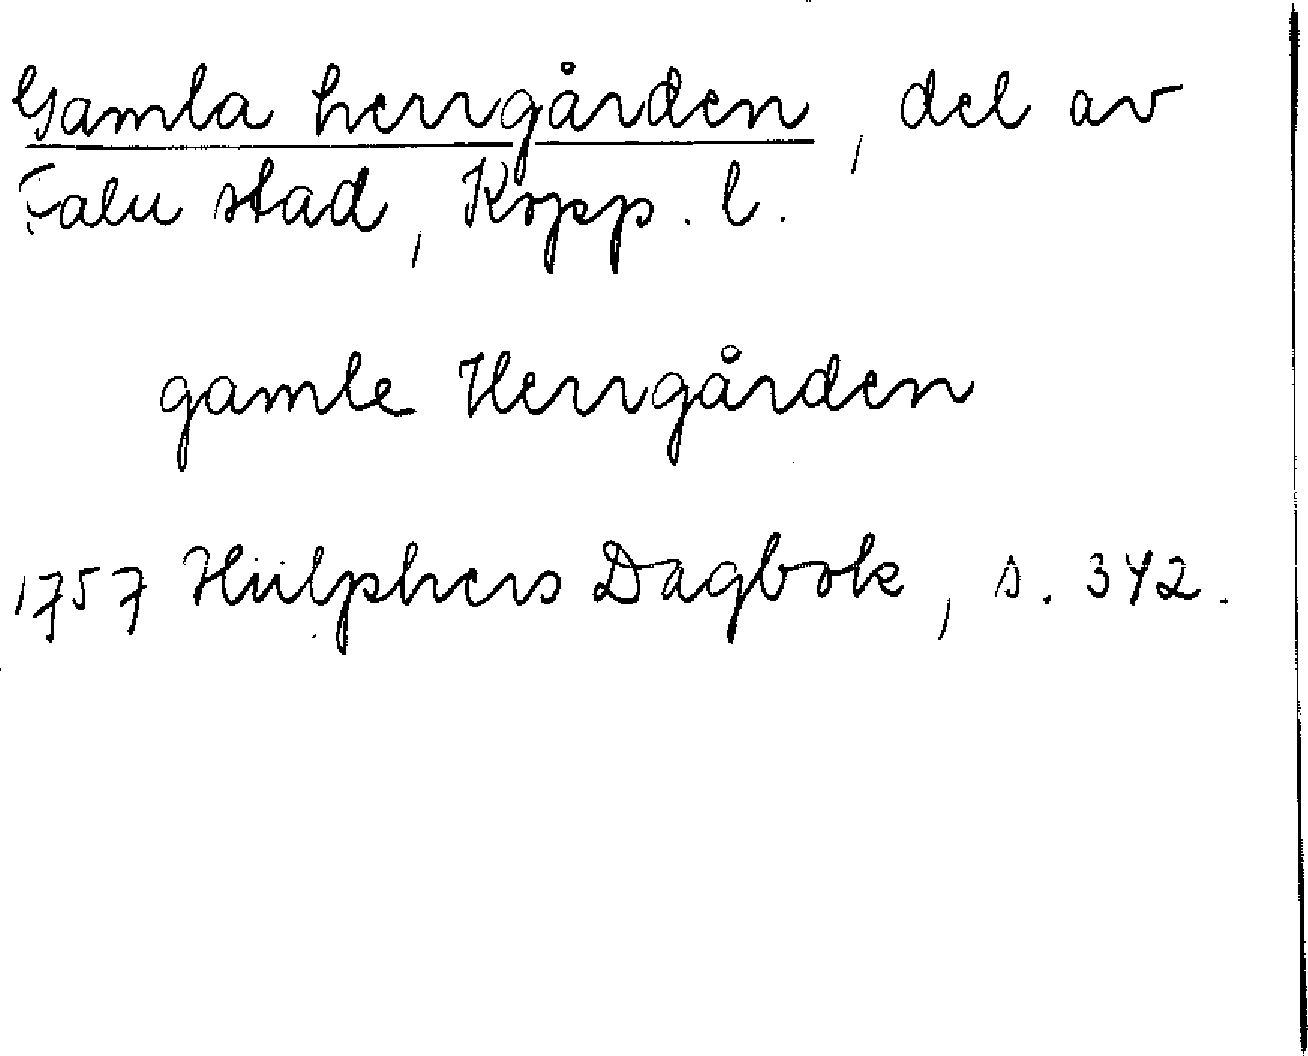 Gamla herrgården, del av
Falu stad, Kopp. l.
gamle Herrgården
1757 Hülphers Dagbok, s. 342.